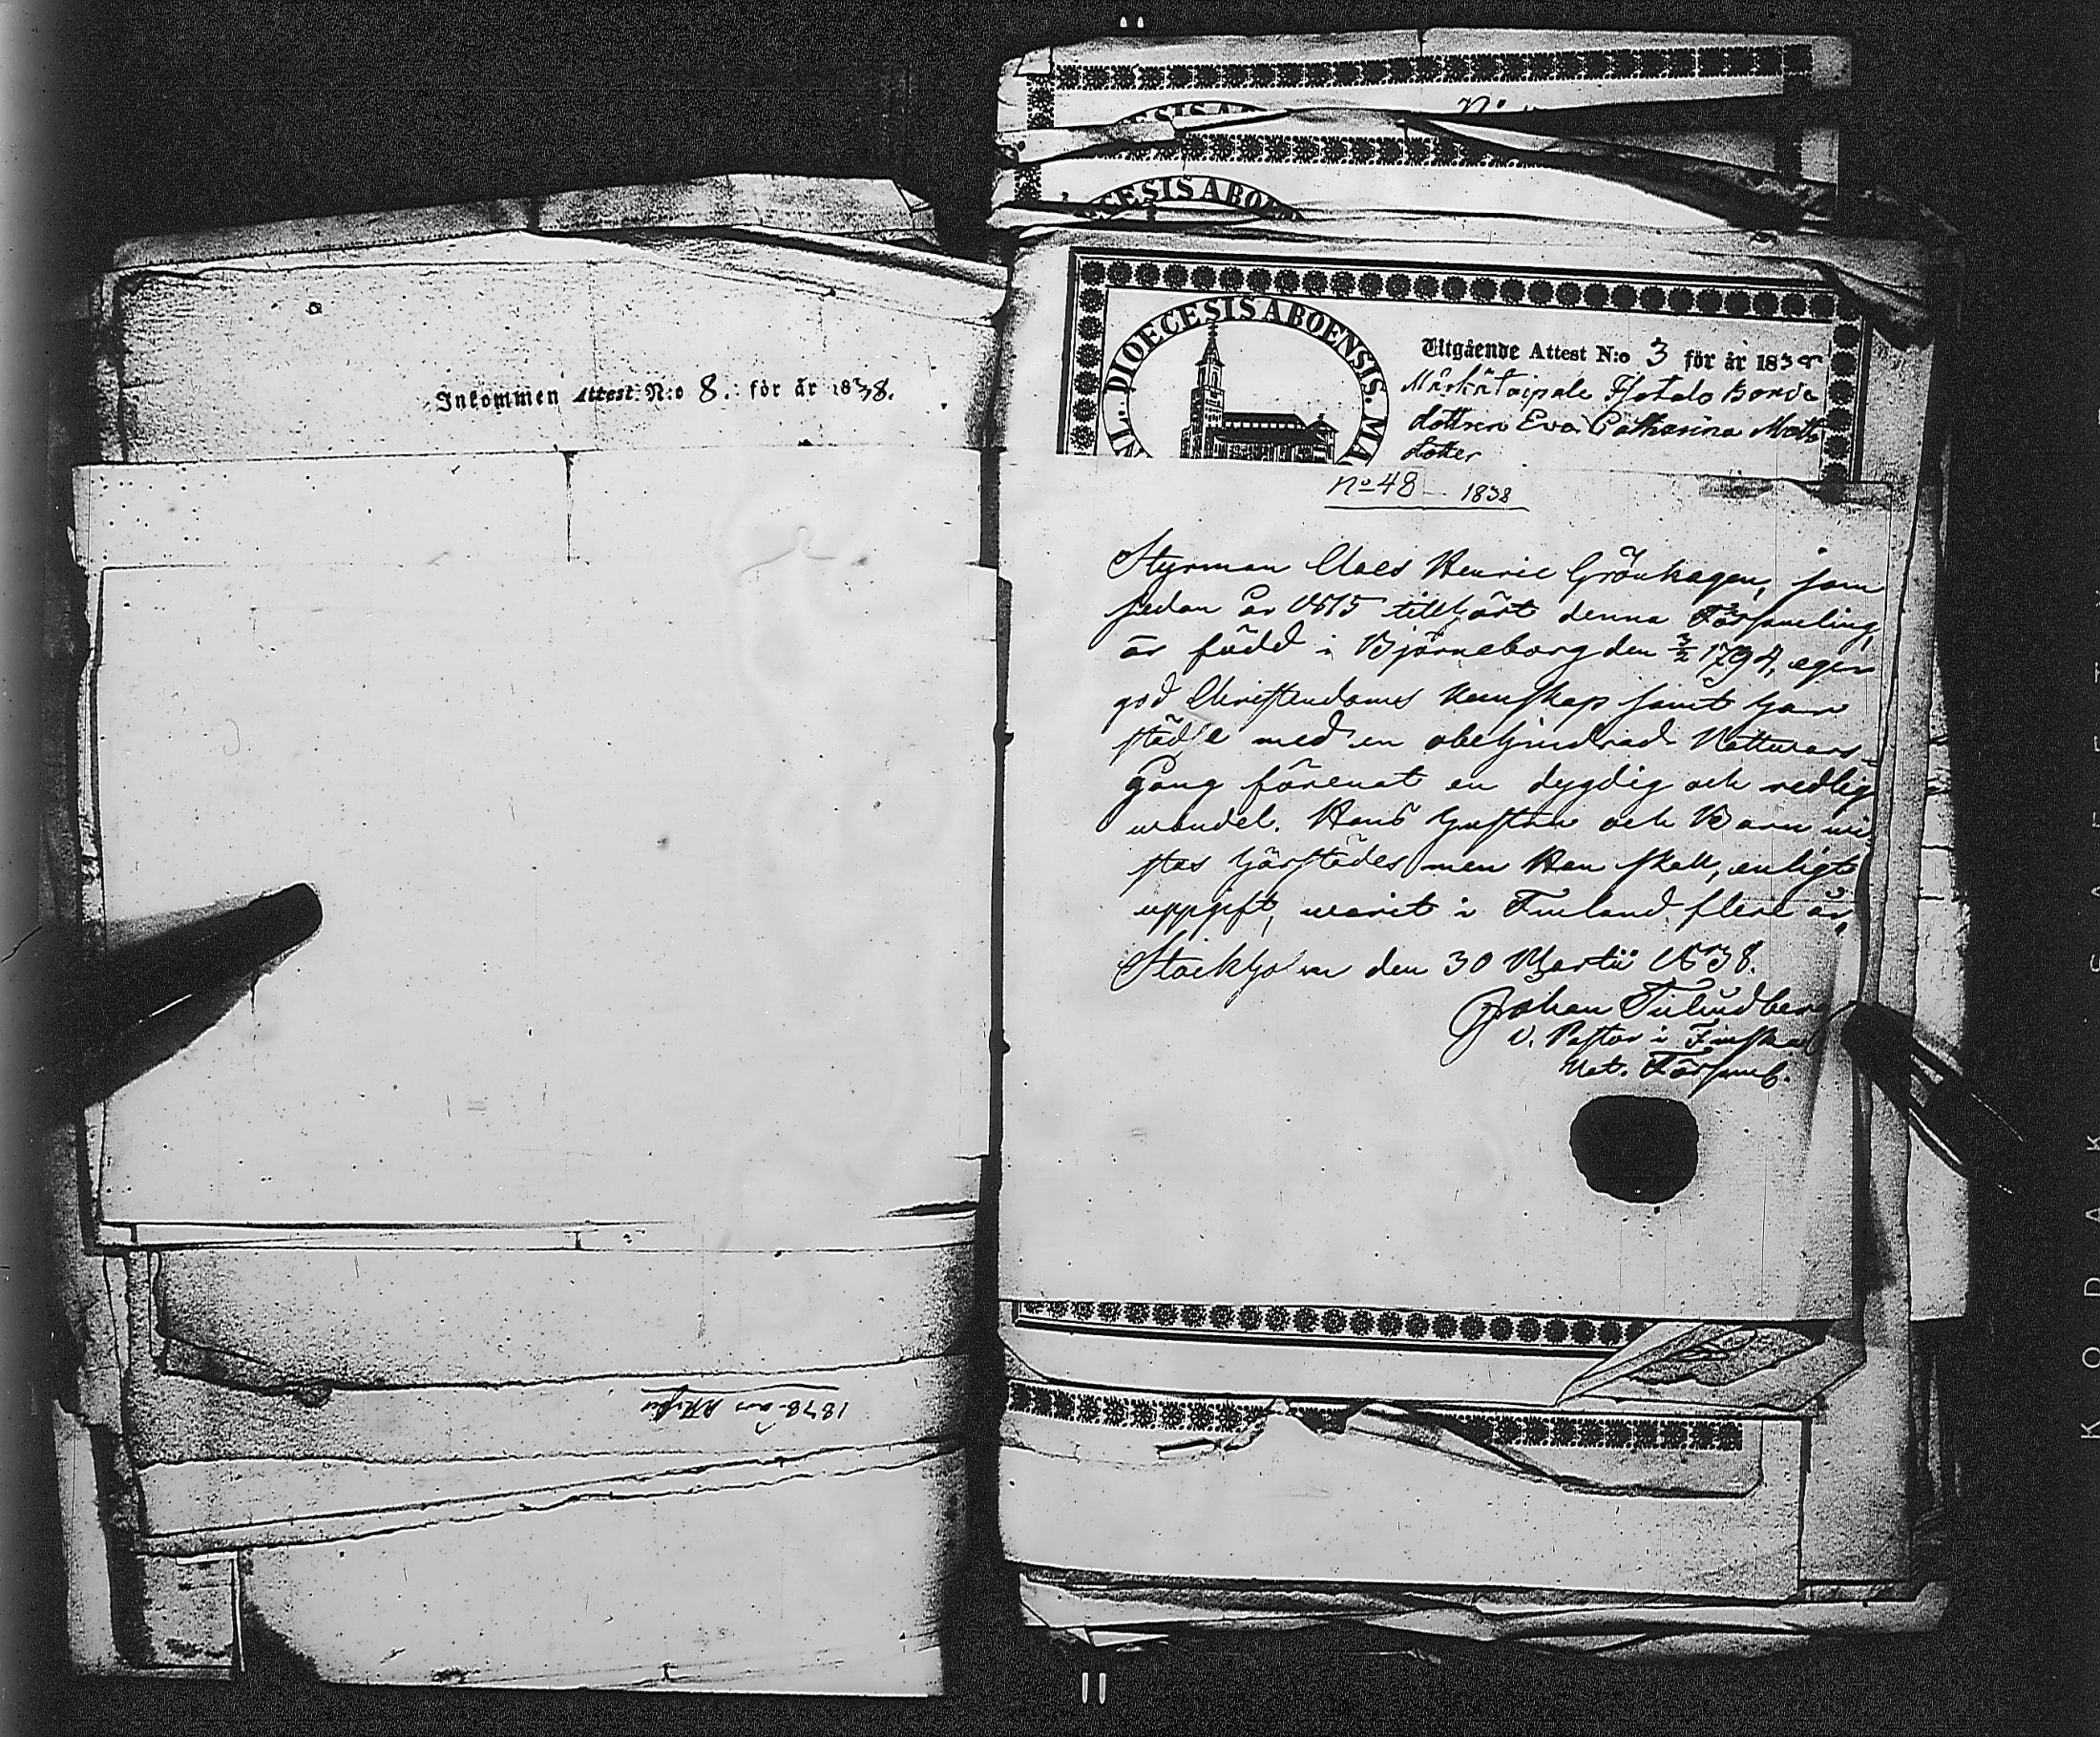 Inkommen Attest N:o 8. för år 1838.
DIOECESIS ABO
CESIS ABOEN
DIOECESIS ABOENSIS. MA
Utgående Attest N:o 3 för år 1838
Hotals Bonde
dottren Eva Catharina Matts
dotter
No 48 1838
Styrman Claes Henric Grönhagen, som
sedan år 1815 tillhört denna Församling,
är född i Björneborg den 3/2 1794, eger
god Christendoms kunskap samt har
städse med en obehindrad Nattvards
Gång förenat en dygdig och redlig
wandel. Hans Hustru och Barn wi
stas härstädes men Han skall, enligt
uppgift, warit i Finland flere år,
Stockholm den 30 Martii 1838.
Johan
v. Pastor i Finska
Nat. Församl.
KODAK SAFETY